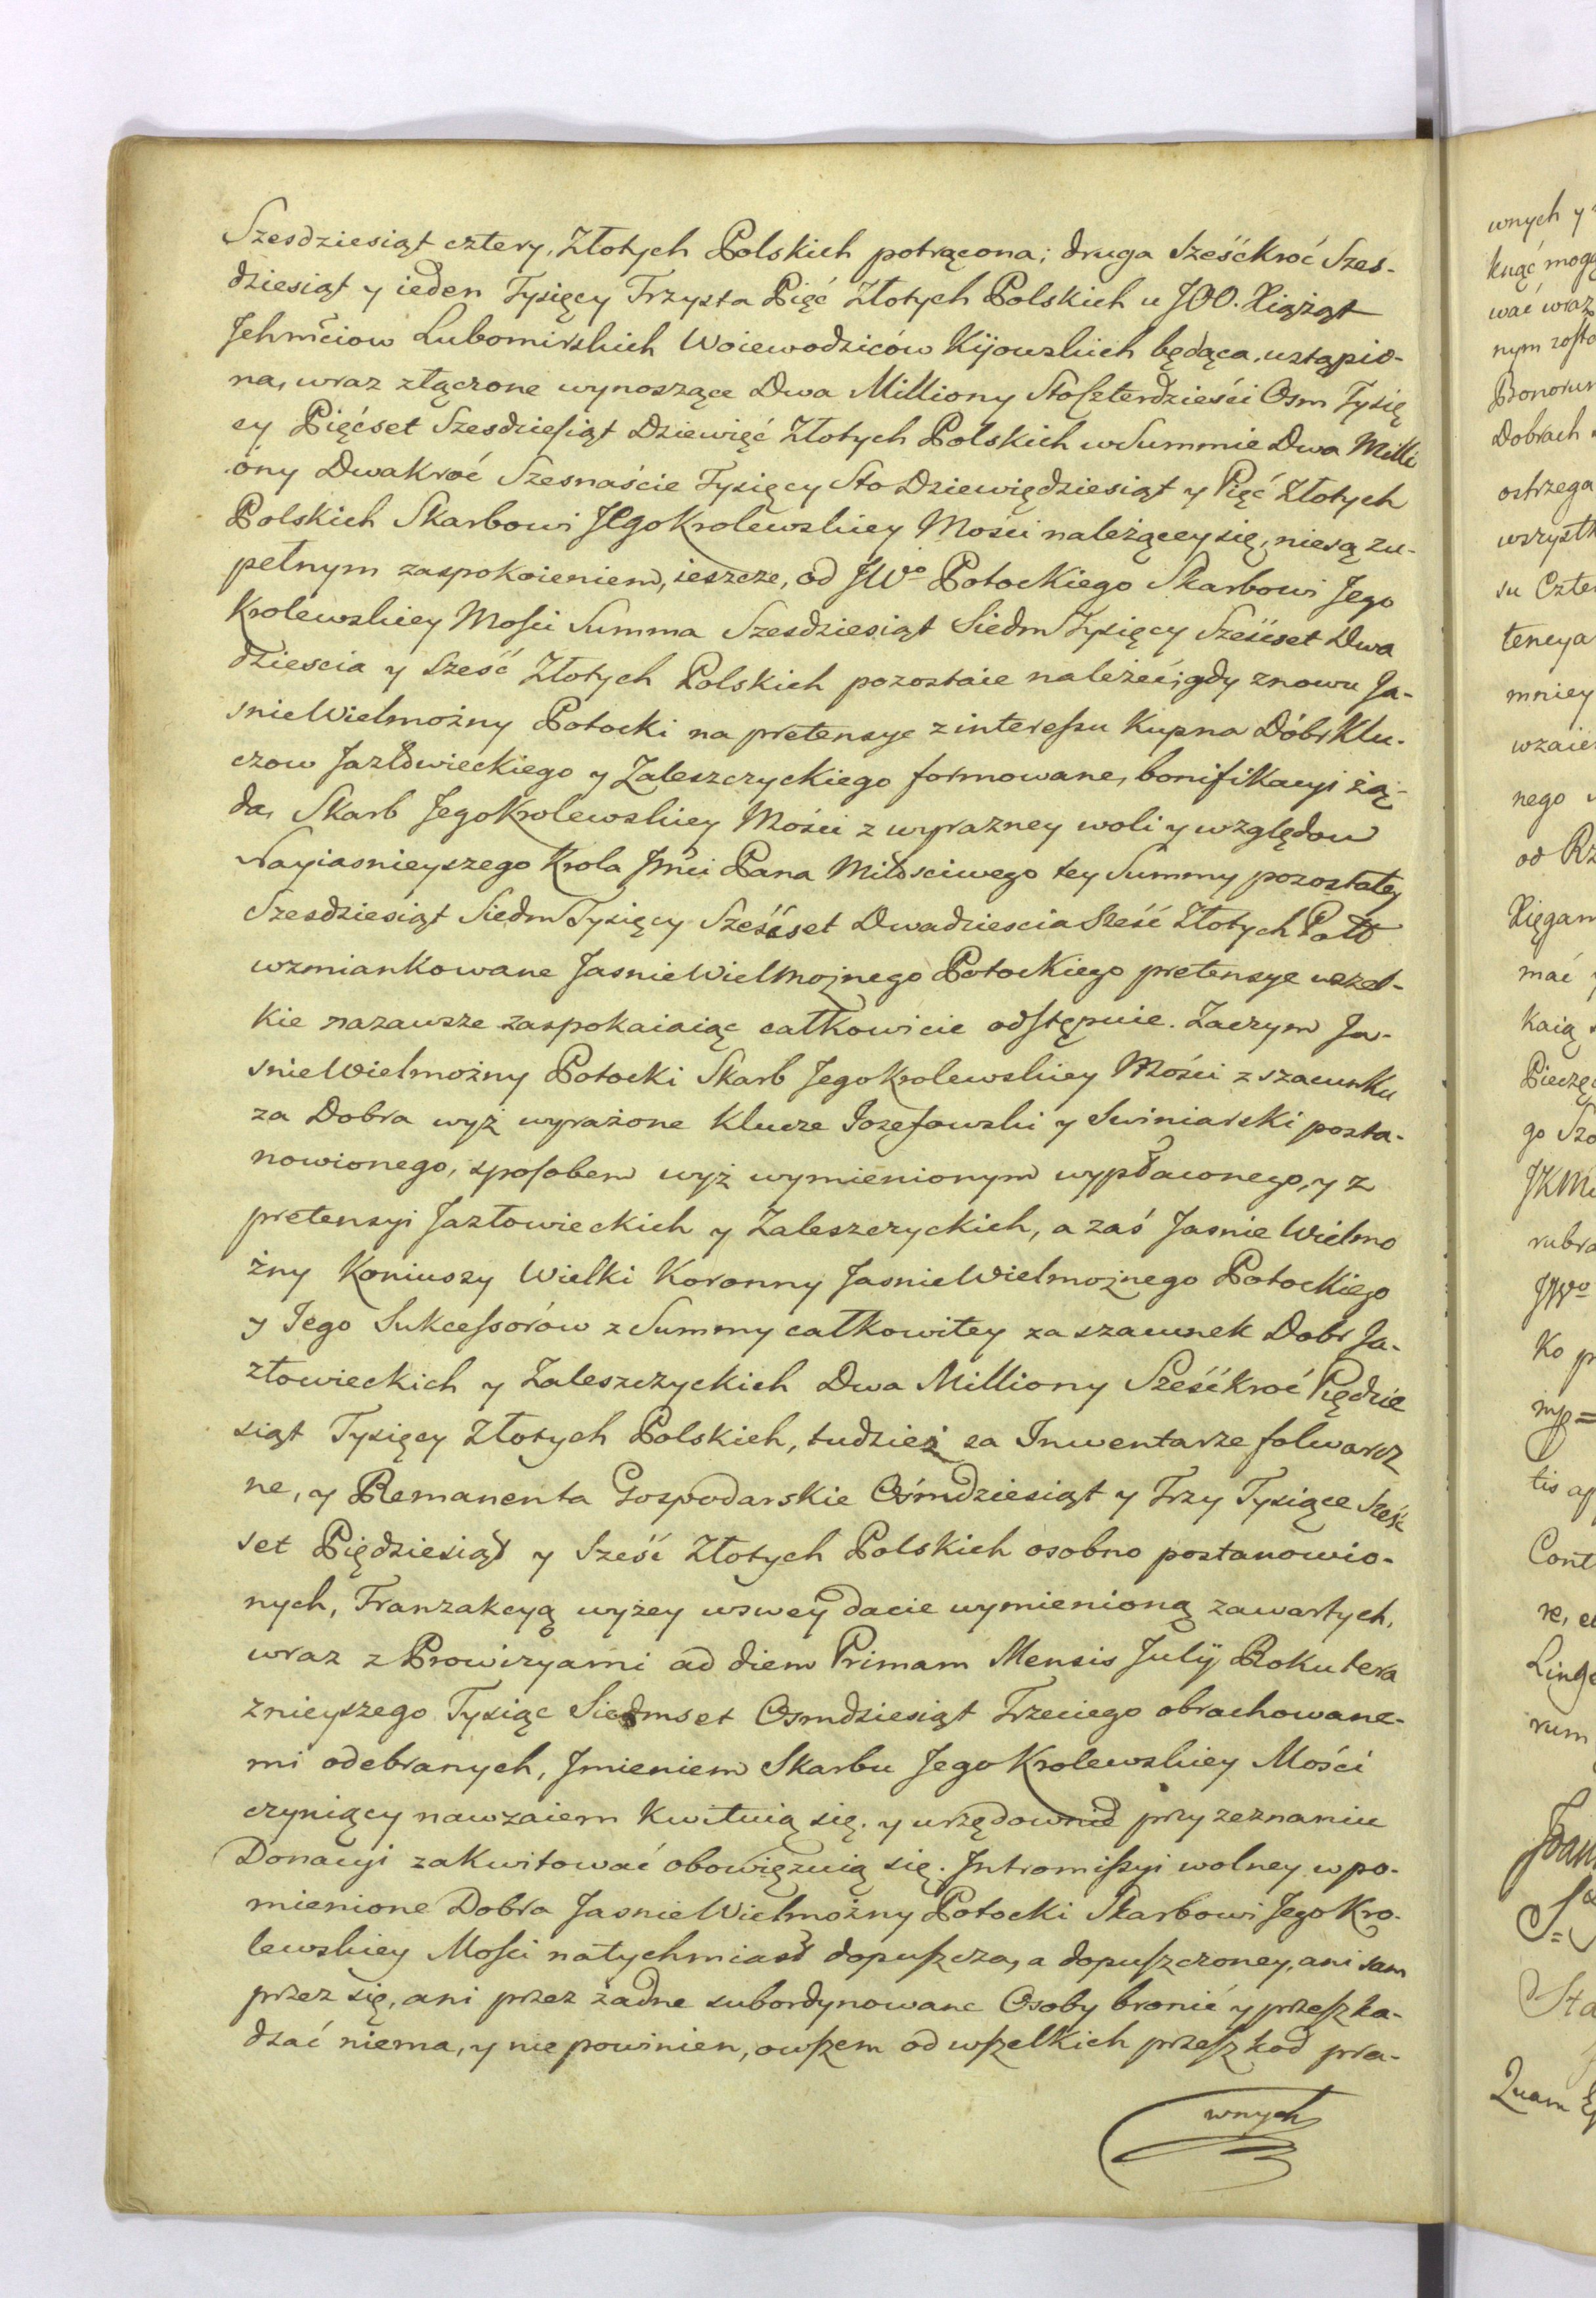 Szesdziesiąt cztery, Złotych Polskich potrącona; druga Sześćkroć Szes-
dziesiąt y ieden Tysięcy Trzysta Pięć Złotych Polskich u JOO. Xiążąt
Jchmćiow Lubomirskich Woiewodziców Kijowskich będąca, ustąpio-
na, wraz złączone wynoszące Dwa Milliony Sto Czterdzieści Osm Tysię
cy Pięćset Szesdziesiąt Dziewięć Złotych Polskich w Summie Dwa Milli
ony Dwakroć Szesnaście Tysięcy Sto Dziewiędziesiąt y Pięć Złotych
Polskich Skarbowi JEgo Krolewskiey Mości należącey się, niesą zu-
pełnym zaspokoieniem, ieszcze, od JWo Potockiego Skarbowi Jego
Krolewskiey Mości Summa Szesdziesiąt Siedm Tysięcy Sześset Dwa
dziescia y Sześć Złotych Polskich pozostaie należeć; gdy znowu Ja-
snie Wielmożny Potocki na pretensye z interessu Kupna Dóbr Klu-
czow Jazłowieckiego y Zaleszczyckiego formowane, bonifikacyi żą-
da, Skarb Jego Krolewskiey Mości z wyrazney woli y względow
Nayiasnieyszego Krola Jmći Pana Miłościwego tey Summy pozostałey
Szesdziesiąt Siedm Tysięcy Sześćset Dwadziescia Sześć Złotych Pol
wzmiankowane Jasnie Wielmożnego Potockiego pretensye wszel-
kie nazawsze zaspokaiaiąc całkowicie odstępuie. Zaczym Ja-
snie Wielmożny Potocki Skarb Jego Krolewskiey Mości z szacunku
za Dobra wyż wyrażone Klucze Jozefowski y Swiniarski posta-
nowionego, sposobem wyż wymienionym wypłaconego, y z
pretensyi Jazłowieckich y Zaleszczyckich, a zaś Jasnie Wielmo
żny Koniuszy Wielki Koronny Jasnie Wielmożnego Potockiego
y Jego Sukcessorów z Summy całkowitey za szacunek Dobr Ja-
złowieckich y Zaleszczyckich Dwa Milliony Sześćkroć Piędzie
siąt Tysięcy Złotych Polskich, tudzież za Inwentarze folwarcz
ne, y Remanenta Gospodarskie Ośmdziesiąt y Trzy Tysiące Sześć
set Piędziesiąt y Sześć Złotych Polskich osobno postanowio-
nych, Tranzakcyą wyżey w swey dacie wymienioną zawartych,
wraz z Prowizyami ad diem Primam Mensis Julÿ Roku tera
znieyszego Tysiąc Siedmset Osmdziesiąt Trzeciego obrachowane-
mi odebranych, Jmieniem Skarbu Jego Krolewskiey Mości
czyniący nawzaiem Kwituią się, y urzędownie przy zeznaniu
Donacyi zakwitować obowięzuią się. Intromissyi wolney w po-
mienione Dobra Jasnie Wielmożny Potocki Skarbowi Jego Kro-
lewskiey Mości natychmiast dopuszcza, a dopuszczoney, ani sam
przez się, ani przez żadne subordynowane Osoby bronić y przeszka-
dzać niema, y nie powinien, owszem od wszelkich przeszkod pra-
wnych
wnych y
knąć mogą
wać wraz
nym zosta
Bonorum
Dobrach
ostrzega
wszystk
su Czter
tencya
mniey
wzaie
nego
od Rz
Xięgam
mać
kaią
Pieczę
go Szo
JKM
rubro
JWo
ko p
mp=
tis ap
Cont
re, e
Ling
rum
Joan
S=
Sta
Quam